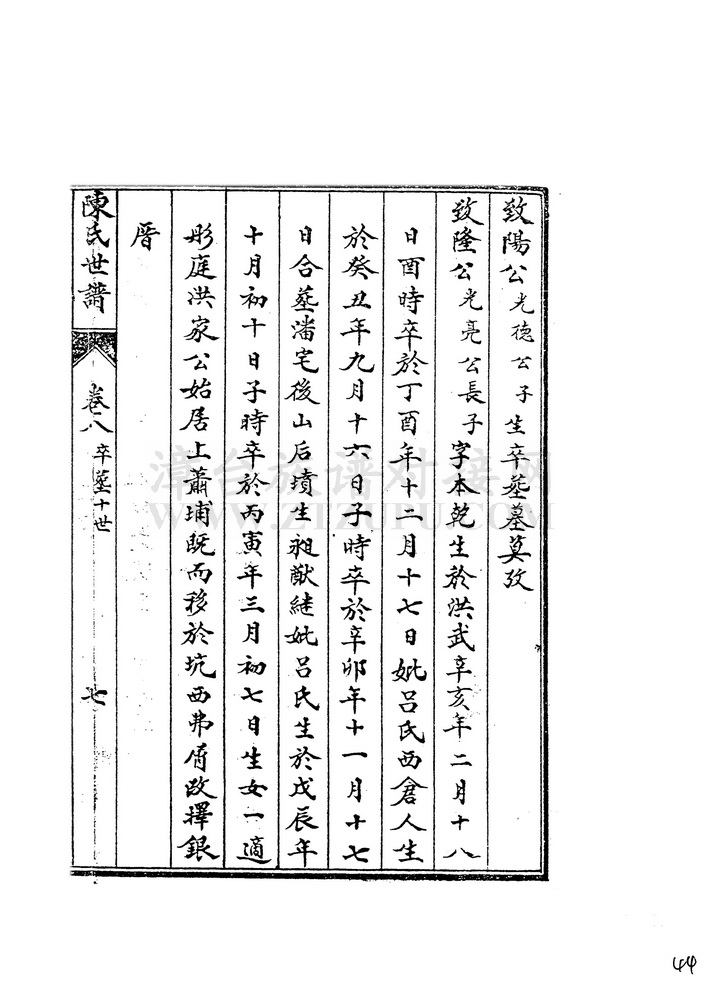 致陽公光德公子生卒墓墓莫攷
致隆公光亮公長子字本乾生於洪武辛亥年二月十八
日酉時卒於丁酉年十二月十七日妣吕氏西倉人生
於癸丑年九月十六日子時卒於辛卯年十一月十七
日合墓潘宅後山后墳生昶猷継妣吕氏生於戊辰年
十月初十日子時卒於丙寅年三月初七日生女一適
彤庭洪家公始居上蕭埔既而移於坑西弗屑改擇銀
厝
陳氏世譜
卷八
卒墓十世
七
漳台族谱对接网
WWW.ZTZUPU.COM
44